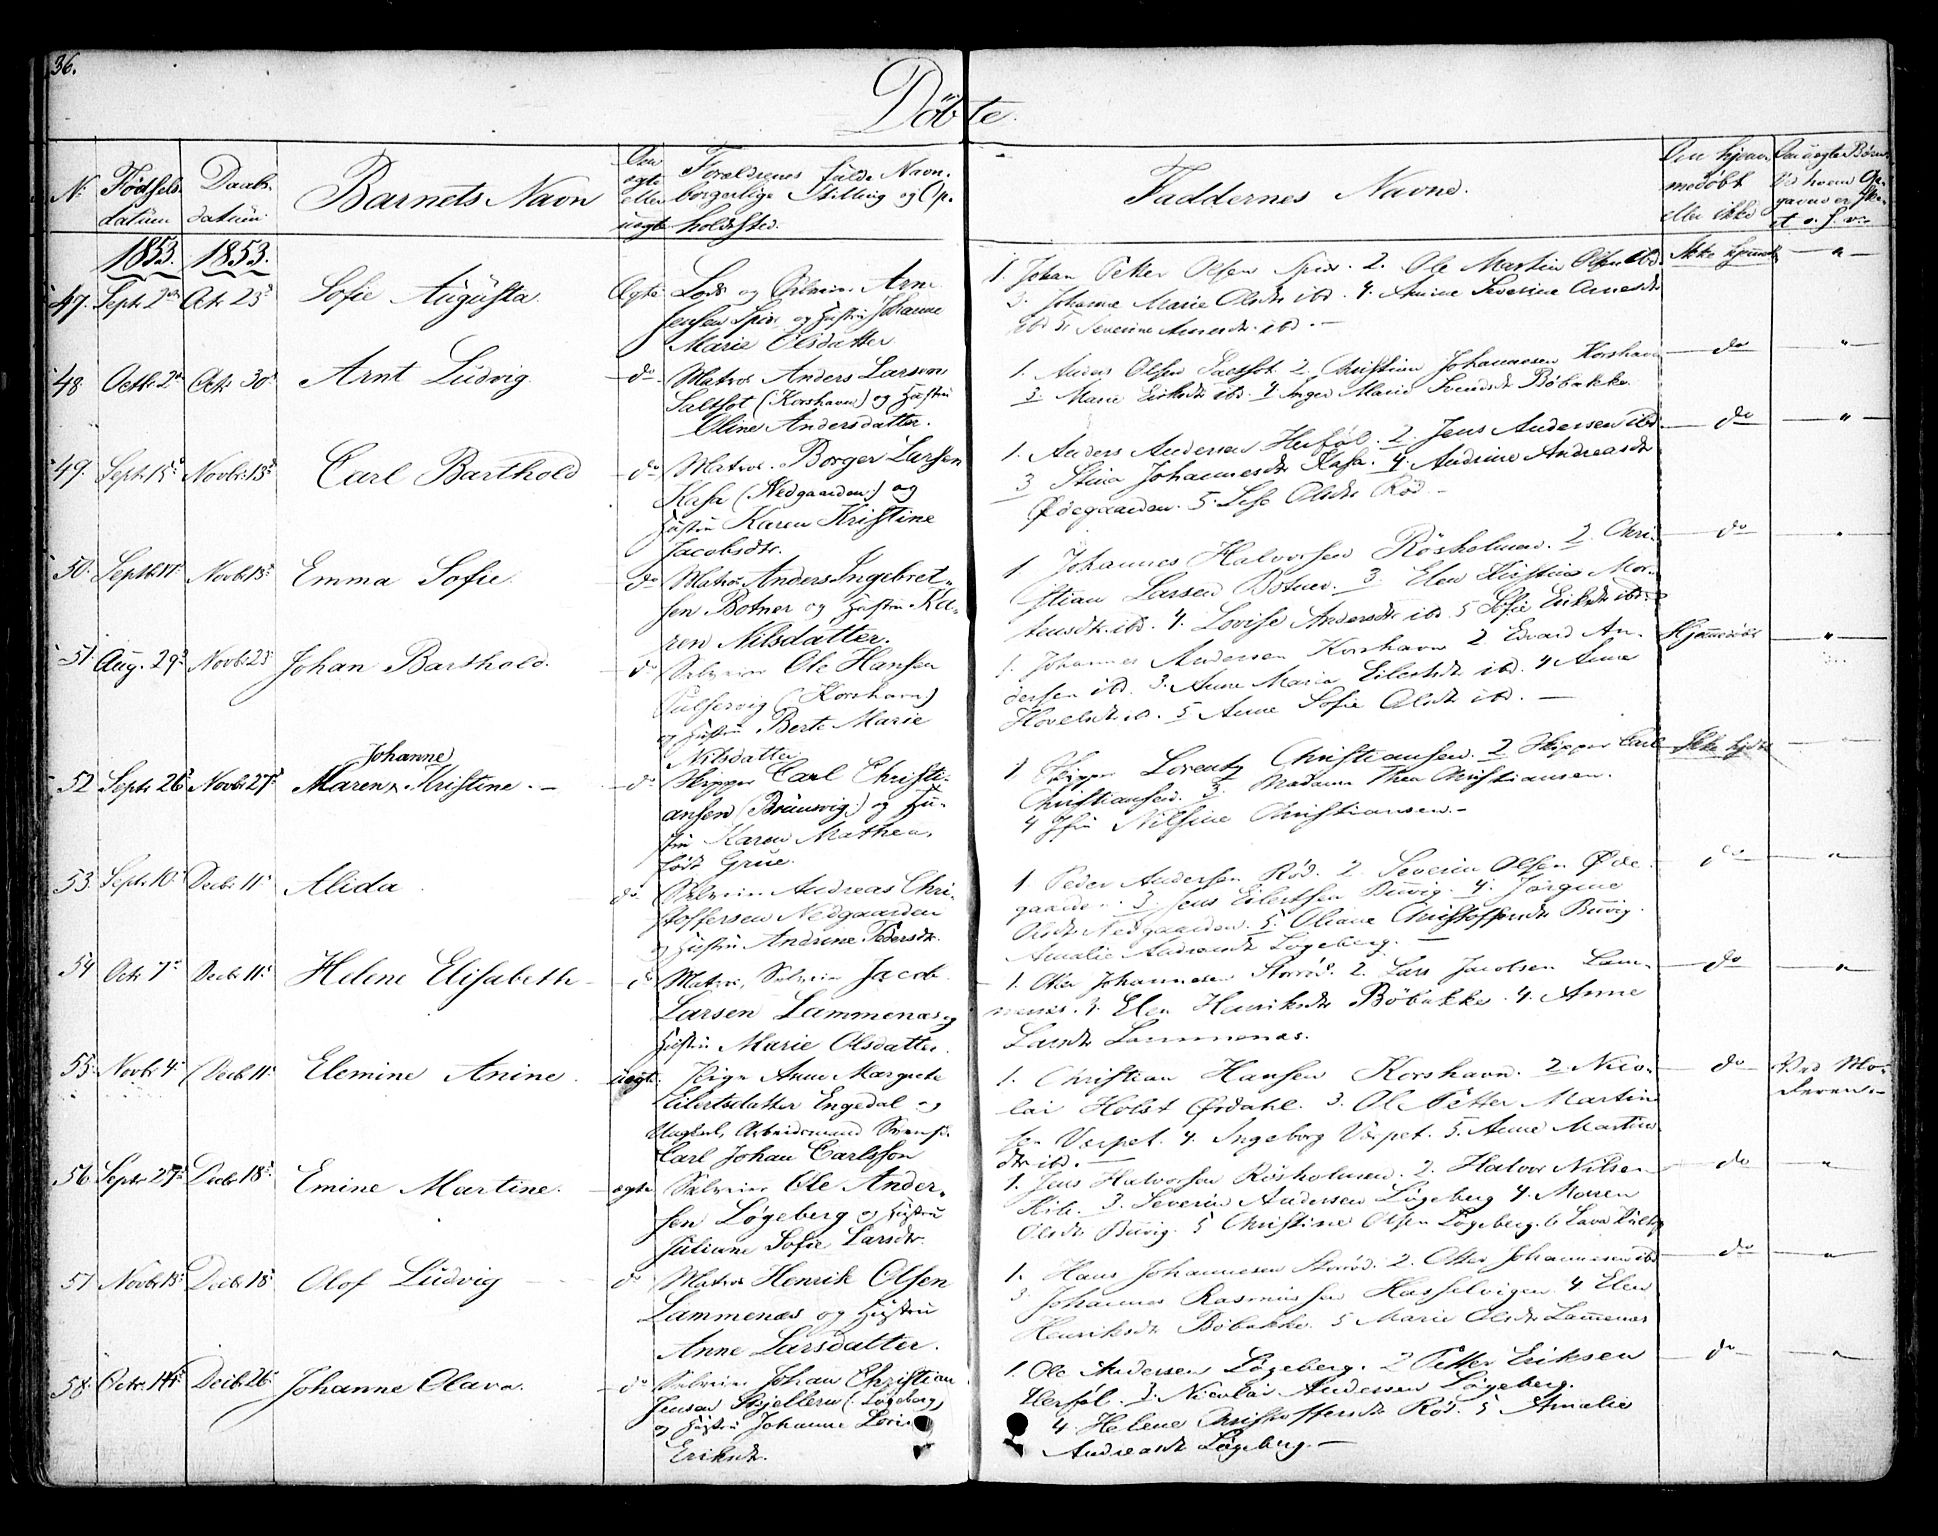 36.
Döbte.
No Fødsels datum
Daabs datum
Barnets Navn
Om ægte eller uægte
Forældrenes fulde Navn, borgerlige Stilling og Opholdssted.
Faddernes Navne.
Om hjemmedöbt eller ikke
1853. 1853.
47. Septr 2den Octr 23d Sofie Augusta Ægte
Lods og Arne
Jensen Spio, og Hustru Johanne
Marie Olsdatter
1. Johan Petter Olsen Spio. 2. Ole Martin Olsen ibd
3. Johanne Marie Olsdtr ibd. 4. Anine Severine Arnesdtr
ibd 5 Severine Arnesdtr. ibd. —
Ikke hjemmdt — " —
48 Octr 2d Octr 30d Arnt Ludvig do
Matros Anders Larsen
Saltsot (Korshavn) og Hustru
Oline Andersdatter.
1. Anders Olsen 2. Christian Johannesen Korshavn
3. Marie Eriksdtr ibd. 4 Inger Marie Svendsdtr Böbakke.
do "
49. Septr 15d Novbr 13d Carl Barthold do
Matros. Borger Larsen
Kasa (Nedgaarden) og
Hustru Karen Kristine
Jacobsdtr.
1. Anders Andersen Herföl. 2 Jens Andersen ibd
3 Stina Johannesdtr Kasa. 4. Andrine Andreasdtr
Ødegaarden. 5. Lise Olsdtr Röd. —
do — " —
50. Septbr 11 Novbr 13d Emma Sofie. do
Matros Anders Ingebret-
sen Botner og Hustru Ka-
ren Nilsdatter.
1. Johannes Halvorsen Rösholmen. 2 Chri-
stian Larsen Botner. 3. Elen Kirstine Mor-
tensdtr. ibd. 4. Lovise Andersdtr ibd. 5 Sofie Eriksdtr ibd.
do "
51. Aug. 29d Novbr 23 Johan Barthold. do
Selveier Ole Hansen
(Korshavn)
og Hustru Berte Marie
Nilsdatter
1. Johannes Andersen Korshavn 2 Edvard An-
dersen ibd. 3. Anne Maria Eilertsdtr ibd. 4 Anne
ibd. 5 Anne Sofie Olsdtr ibd. —
Hjemmedöbt "
52 Septr 26d Novbr 27d
Johanne
Maren Kristine. — do
Skipper Carl Christi-
ansen (Brunsvig) og Hu-
stru Karen Mathea,
født Grue.
1 Skipper Lorentz Christiansen. 2 Skipper Carl
Christiansen. 3. Madame Thea Christiansen.
4 Jfru Nilsine Christiansen. —
Ikke hjdt —
53. Septr 10 Decbr 11 Alida do
Selveier Andreas Chri-
stoffersen Nedgaarden
og Hustru Andrine Pedersdtr.
1 Peder Andersen Röd. 2 Severin Olsen Øde-
gaarden. 3. Jens Eilertsen Buvig. 4. Jörgine
Olsdtr Nedgaarden. 5. Oliane Christoffersdtr Buvig.
Amalie Andreasdtr Lögeberg. —
do — " —
54 Octr 7d Decbr 11 Helene Elisabeth do
Matros, Selveier Jacob
Larsen Lammenæs og
Hustru Marie Olsdatter.
1. Otter Johannesen Storröd. 2. Lars Jacobsen Lam-
menæs. 3. Elen Henriksdtr Böbakke. 4. Anne
Larsdtr Lammenæs.
do — " —
55. Novbr 4 Decbr 11 Elemine Anine. uægte.
Pige Anne Margrete
Eilertsdatter Engedal og
Ungkarl, Arbeidsmand Svensk
Carl Johan Carlsson
1. Christian Hansen Korshavn. 2 Nico-
lai Holst Ørdahl. 3. Ole Petter Martin-
sen Værpet. 4. Ingeborg Værpet. 5. Anne Martin-
dtr ibd. —
do Ved Mo-
deren. —
56 Septr 27d Decbr 18d Emine Martine. ægte
Selveier Ole Ander-
sen Lögeberg og Hustru
Juliane Sofie Larsdtr.
1. Jens Halvorsen Rösholmen. 2. Halvor Nilsen
Kile. 3. Severin Andersen Lögeberg 4. Maren
Olsdtr Buvig. 5 Christine Olsen Lögeberg. 6 Lava
do "
57 Novbr 13 Decbr 18 Olof Ludvig do
Matros Henrik Olsen
Lammenæs og Hustru
Anne Larsdatter.
1. Hans Johannesen Storröd. 2. Otter Johannesen ibd
3 Johannes Rasmussen Hasselvigen. 4 Elen
Henriksdtr Böbakke. 5 Marie Olsdtr Lammenæs
do — " —
58. Octr 14d Decbr 26 Johanne Olava. do
Selveier Johan Christian
Jensen Skjelleren (Lögeberg)
og Hustru Johanne
Eriksdtr.
1. Ole Andersen Lögeberg. 2 Petter Eriksen
Herföl. 3. Nicolai Andersen Lögeberg.
4. Helene Christoffersdtr Röd. 5 Amalie
Andreasdtr Lögeberg. —
do "